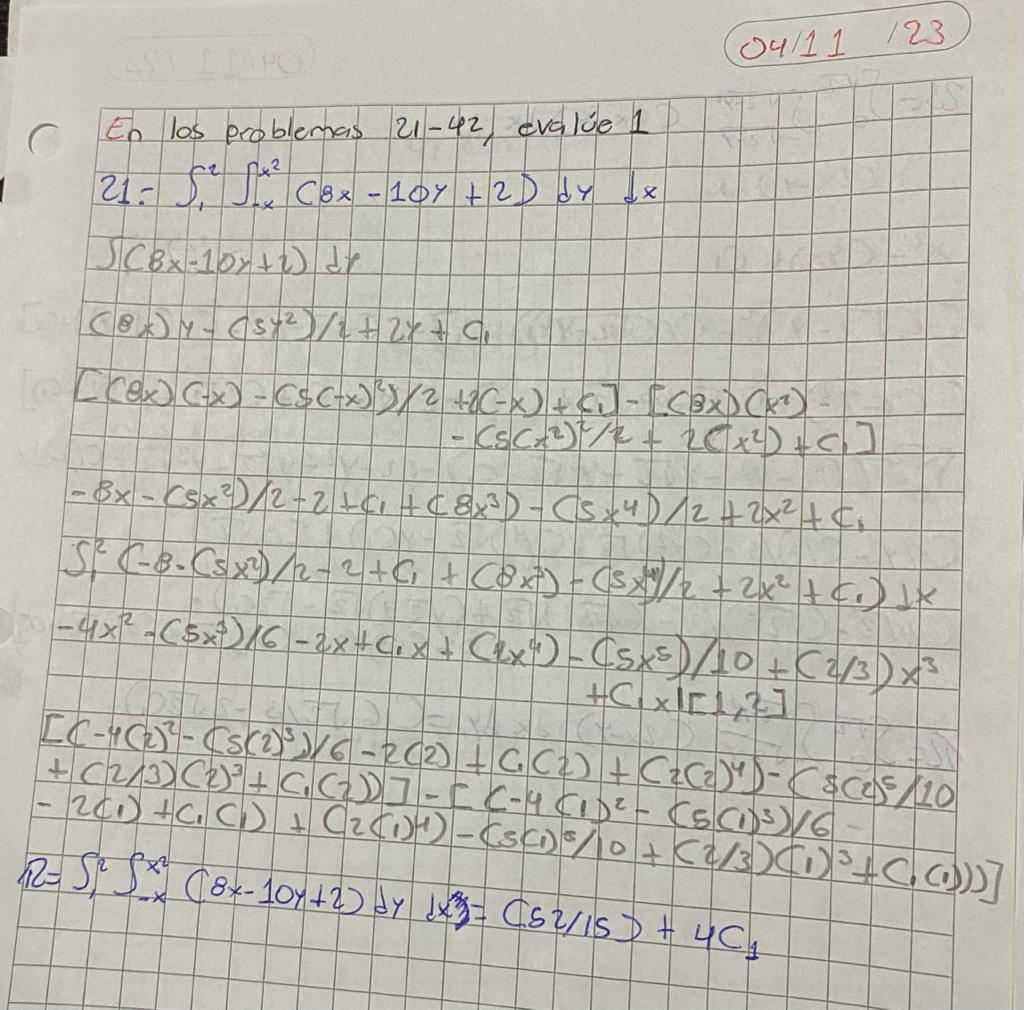 04/11/23
En los problemas 21-42, evalúe 1
21= ∫₁² ∫₋ₓ^x² (8x - 10y + 2) dy dx
∫(8x-10y+2) dy
(8x)y - (5y²)/2 + 2y + C₁
[(8x)(-x) - (5(-x)²)/2 + 2(-x) + C₁] - [(8x)(x²) -
- (5(x²)²/2 + 2(x²) + C₁]
-8x - (5x²)/2 - 2 + C₁ + (8x³) - (5x⁴)/2 + 2x² + C₁
∫₁² (-8 - (5x²)/2 - 2 + C₁ + (8x³) - (5x⁴)/2 + 2x² + C₁) dx
-4x² - (5x³)/6 - 2x + C₁x + (2x⁴) - (5x⁵)/10 + (2/3)x³
+ C₁x|[1,2]
[(-4(2)² - (5(2)³)/6 - 2(2) + C₁(2) + (2(2)⁴) - (5(2)⁵/10
+ (2/3)(2)³ + C₁(2))] - [(-4(1)² - (5(1)³)/6 -
- 2(1) + C₁(1) + (2(1)⁴) - (5(1)⁵/10 + (2/3)(1)³ + C₁(1)))]
R= ∫₁² ∫₋ₓ^x² (8x-10y+2) dy dx = (52/15) + 4C₁